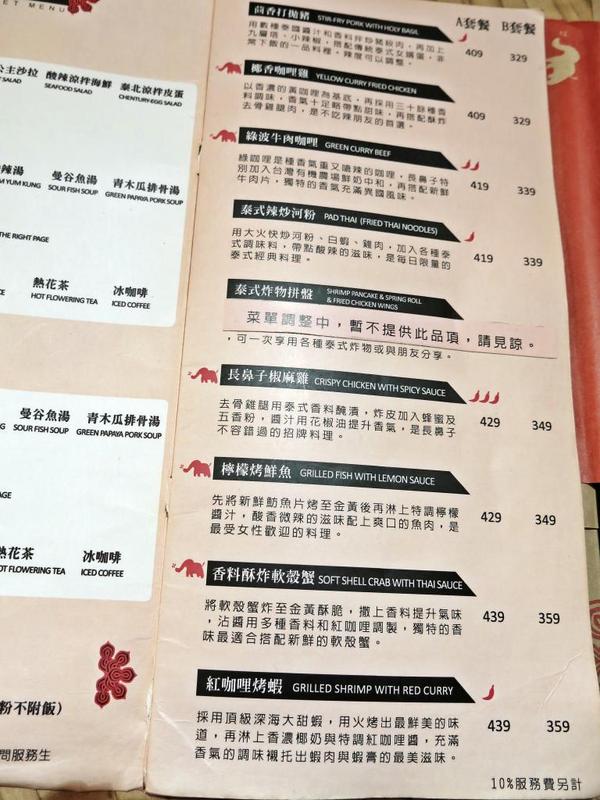 ET MENU
公主沙拉 酸辣涼拌海鮮 泰北涼拌皮蛋
SALAD SEAFOOD SALAD CHENTURY-EGG SALAD
辣湯 曼谷魚湯 青木瓜排骨湯
M YUM KUNG SOUR FISH SOUP GREEN PAPAYA PORK SOUP
THE RIGHT PAGE
熱花茶 冰咖啡
HOT FLOWERING TEA ICED COFFEE
曼谷魚湯 青木瓜排骨湯
NG SOUR FISH SOUP GREEN PAPAYA PORK SOUP
PAGE
熱花茶 冰咖啡
OT FLOWERING TEA ICED COFFEE
粉不附飯)
問服務生
A套餐 B套餐
茴香打拋豬 STIR-FRY PORK WITH HOLY BASIL
用數種泰國醬汁和香料拌炒豬絞肉，再加上
九層塔、小辣椒，搭配傳統泰式女媧蛋，非
常下飯的一品料理。辣度可以調整。
409 329
椰香咖哩雞 YELLOW CURRY FRIED CHICKEN
以香濃的黃咖哩為基底，再採用三十餘種香
料調味，香氣十足略帶點甜味，再搭配酥炸
去骨雞腿肉，是不吃辣朋友的首選。
409 329
綠波牛肉咖哩 GREEN CURRY BEEF
綠咖哩是種香氣重又嗆辣的咖哩，長鼻子特
別加入台灣有機農場鮮奶中和，再搭配新鮮
牛肉片，獨特的香氣充滿異國風味。
419 339
泰式辣炒河粉 PAD THAI (FRIED THAI NOODLES)
用大火快炒河粉、白蝦、雞肉，加入各種泰
式調味料，帶點酸辣的滋味，是每日限量的
泰式經典料理。
419 339
泰式炸物拼盤 SHRIMP PANCAKE & SPRING ROLL
& FRIED CHICKEN WINGS
菜單調整中，暫不提供此品項，請見諒。
，可一次享用各種泰式炸物或與朋友分享。
長鼻子椒麻雞 CRISPY CHICKEN WITH SPICY SAUCE
去骨雞腿用泰式香料醃漬，炸皮加入蜂蜜及
五香粉，醬汁用花椒油提升香氣，是長鼻子
不容錯過的招牌料理。
429 349
檸檬烤鮮魚 GRILLED FISH WITH LEMON SAUCE
先將新鮮魴魚片烤至金黃後再淋上特調檸檬
醬汁，酸香微辣的滋味配上爽口的魚肉，是
最受女性歡迎的料理。
429 349
香料酥炸軟殼蟹 SOFT SHELL CRAB WITH THAI SAUCE
將軟殼蟹炸至金黃酥脆，撒上香料提升氣味
，沾醬用多種香料和紅咖哩調製，獨特的香
味最適合搭配新鮮的軟殼蟹。
439 359
紅咖哩烤蝦 GRILLED SHRIMP WITH RED CURRY
採用頂級深海大甜蝦，用火烤出最鮮美的味
道，再淋上香濃椰奶與特調紅咖哩醬，充滿
香氣的調味襯托出蝦肉與蝦膏的最美滋味。
439 359
10%服務費另計